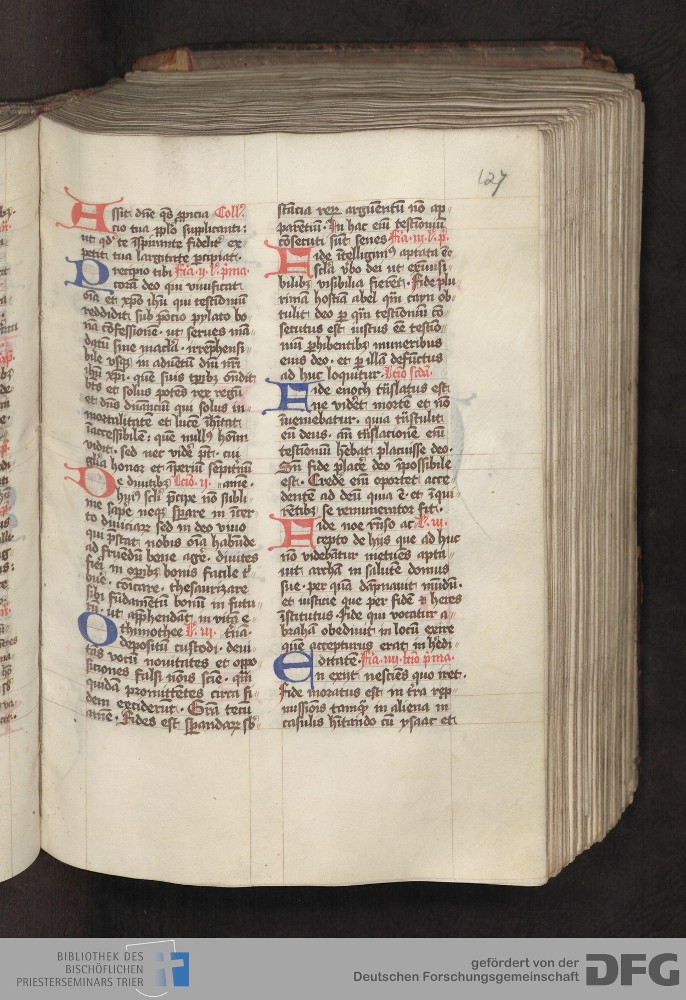 127
Assit dn̄e q̄s ꝓpicia Coll'.
cio tua pplo supplicanti:
ut qd' te īspirante fideliť ex
petit tua largitate ꝑcipiat.
Precipio tibi f̄ia .ij. l'. p̄ma
corā deo qui viuificat
oīa et xp̄o ihū qui testīoniū
reddidit sub pōcio pylato bo
nā cōfessionē. ut serues mā
datū sine macl'a. irrep̄hensi
bile vsqꝫ in aduentū dn̄i nr̄i
ihū xp̄i. quē suis tꝑibꝫ ōndit
bt̄s et solus potēs rex regū
et dn̄s dn̄anciū qui solus in
mortalitatē et lucē īhitat
īaccessibilē: quē null' homī
vidit. sed nec vidē pt̄. cui
gl'ia honor et īperiū sepitnū
De diuitibꝫ Lctio .ij. amē.
hui' scl'i p̄cipe nō subli
me sape neqꝫ sꝑare in īcer
to diuiciarꝝ sed in deo viuo
qui p̄stat nobis oīa habūde
ad fruēdū bene agē. diuites
fieri in oꝑibꝫ bonis facile t'
bue. cōicare. thesaurizare
sibi fūdamētū bonū in futu
rū. ut app̄hendāt in vitā e
O thimothee L'. iij. t'nā.
depositū custodi. deui
tas vocū nouitates et oppo
siciones falsi nōis sciē. qm̄
quidā promittētes circa fi
dem exciderūt. Grā tecū
amē. Fides est sꝑandarꝝ sb'
stācia reꝝ argūentū nō ap
parētiū. In hac eī testīoniū
cōsecuti sūt senes f̄ia .iij. l'. p̄.
Fide ītelligim' aptata eē
scl'a v̄bo dei ut exīuisi
bilibꝫ visibilia fierēt. Fide plu
rimā hostiā abel qm̄ cayn ob
tulit deo ꝑ qm̄ testīoniū cō
secutus est iustus eē testīo
niū ꝑhibentibꝫ muneribus
eius deo. et ꝑ illā defūctus
ad huc loquitur. Lctio scd̄a.
Fide enoch trāslatus est
ne vidēt mortē et nō
īueniebatur. quia trāstulit
eū deus. an̄ trāslationē eī
testīoniū hēbat placuisse deo.
Sn̄ fide placē deo īpossibile
est. Credē eī oportet acce
dentē ad deū quia ē et īqui
rētibꝫ se remunerator fit.
Fide noe r̄nso ac L'. iij.
cepto de hijs que ad huc
nō videbātur metuēs apta
uit archā in salutē domus
sue. per quā dāpnauit mūdū.
et iusticie que per fidē ē heres
īstitutus. Fide qui vocatur a
brahā obediuit in locū exire
quē accepturus erat in hēdi
Editatē. f̄ia .iiij. lctio p̄ma.
En exiit nesciēs quo iret.
Fide moratus est in t'ra rep
missiōis tamqꝫ in aliena in
casulis hītando cū ysaac et
BIBLIOTHEK DES
BISCHÖFLICHEN
PRIESTERSEMINARS TRIER
gefördert von der
Deutschen Forschungsgemeinschaft
DFG